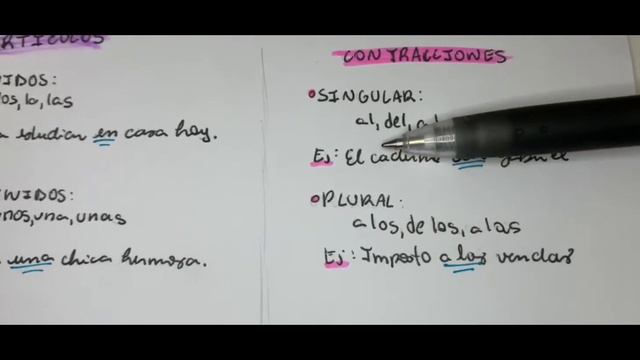 RTICULOS
IDOS:
os, lo, las
estudiar en casa hoy.
NIDOS:
nos, una, unas
una chica hermosa.
CONTRACCIONES
SINGULAR:
al, del,
Ej: El
PLURAL:
a los, de los, a las
Ej: a los vendas